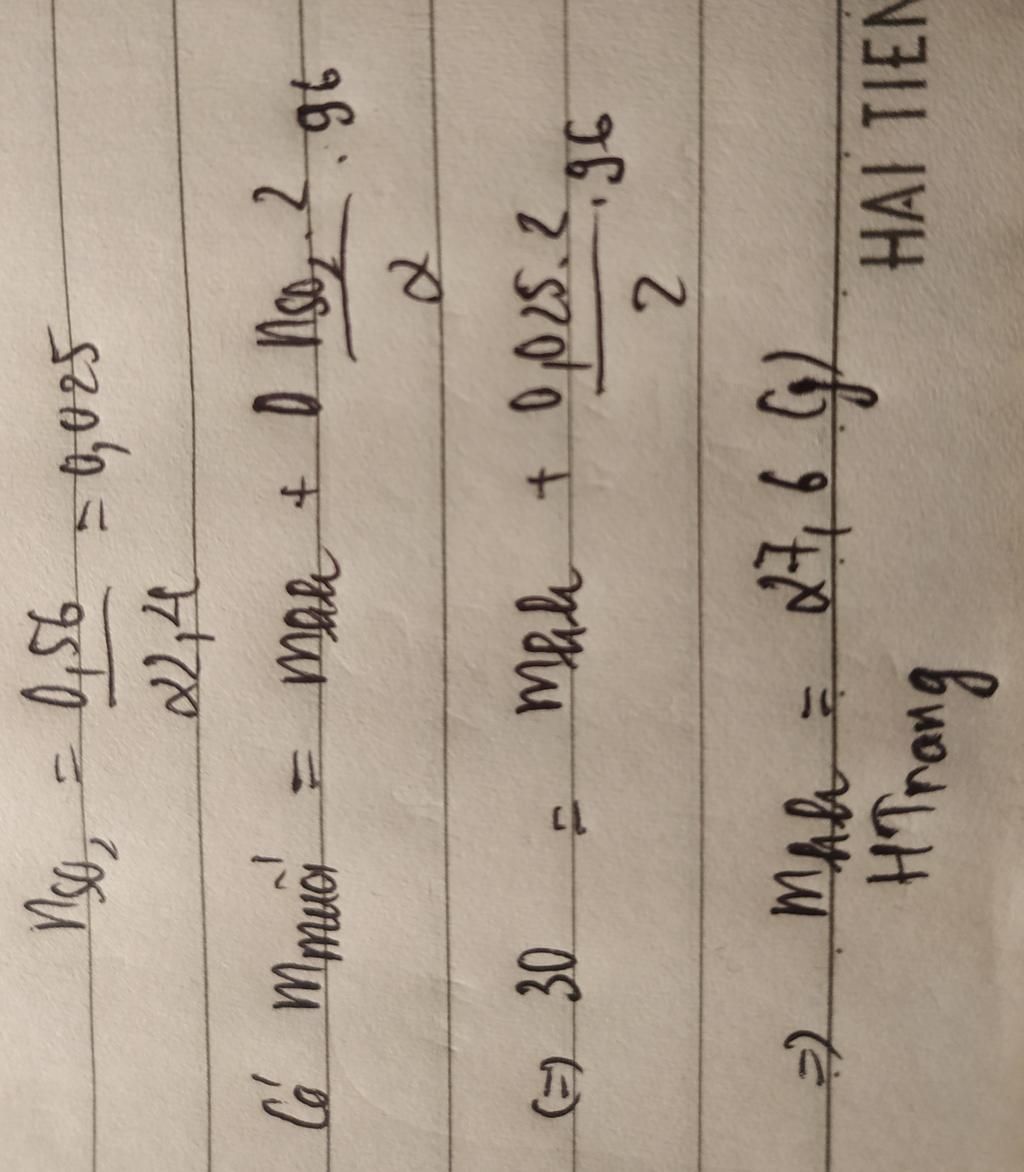 nSO2 = 0,56 / 22,4 = 0,025
Có mmuối = mhh + nSO2 . 2 / 2 . 96
(=) 30 = mhh + 0,025 . 2 / 2 . 96
=) mhh = 27,6 (g)
HTrang
HAI TIEN